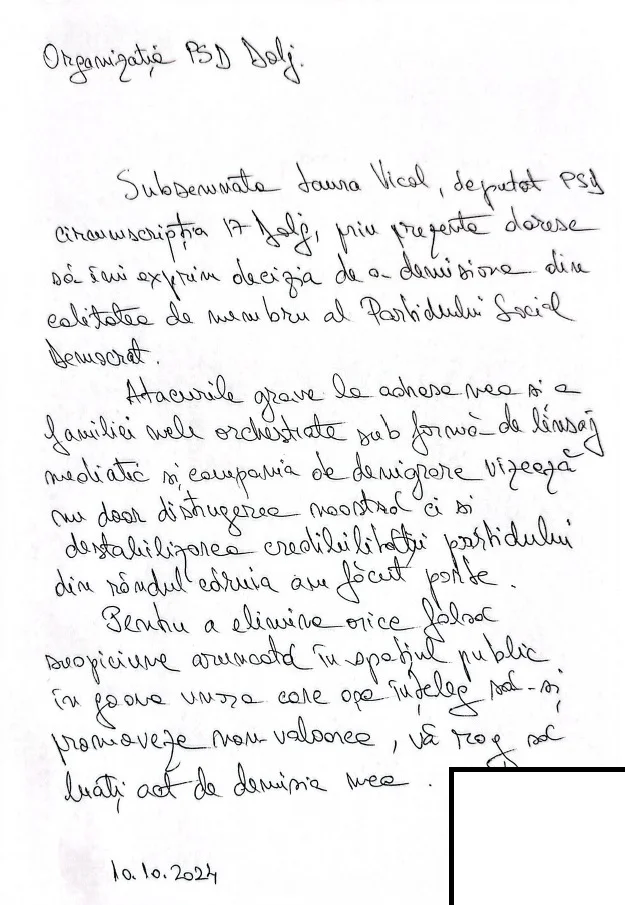 Organizație PSD Dolj.
Subsemnata Laura Vicol, deputat PSD
circumscripția 17 Dolj, prin prezenta doresc
să îmi exprim decizia de a demisiona din
calitatea de membru al Partidului Social
Democrat.
Atacurile grave la adresa mea si a
familiei mele orchestrate sub formă de linsaj
mediatic și campania de denigrare vizează
nu doar distrugerea noastră ci si
destabilizarea credibilității partidului
din rândul căruia am făcut parte.
Pentru a elimina orice falsă
suspiciune aruncată în spațiul public
în goana unora care așa înțeleg să-și
promoveze non-valoarea, vă rog să
luați act de demisia mea.
10.10.2024